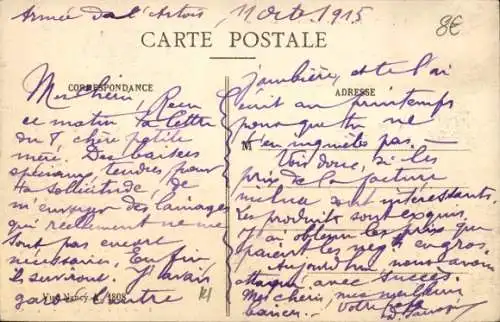 Armée de l'Artois, 11 Octe 1915
8€
CARTE POSTALE
CORRESPONDANCE
Mon chéri, Reçu
ce matin ta lettre
du 7 chère petite
mère. Des baisers
spéciaux, tendres pour
ta sollicitude de
m'envoyer des lainages
qui réellement ne me
sont pas encore
nécessaires. Enfin,
ils serviront. J'avais
gardé l'autre
Nancy 1808
ADRESSE
jambière, et te l'ai
écrit au printemps
pour que tu ne
M
t'en inquiètes pas —
Vois donc, si les
prix de la facture
sont intéressants.
Les produits sont exquis.
J'ai obtenu les prix que
paient les négts en gros.
Aujourd'hui nous avons
attaqué avec succès.
Mes chéris, mes meilleurs
baisers. Votre